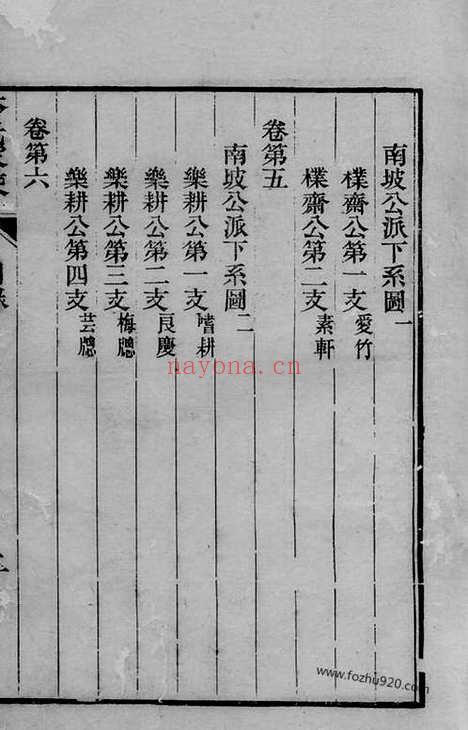 南坡公派下系圖一
樸齋公第一支愛竹
樸齋公第二支素軒
卷第五
南坡公派下系圖二
樂耕公第一支嗜耕
樂耕公第二支良慶
樂耕公第三支梅牕
樂耕公第四支芸牕
卷第六
nayona.cn
www.fozhu920.com